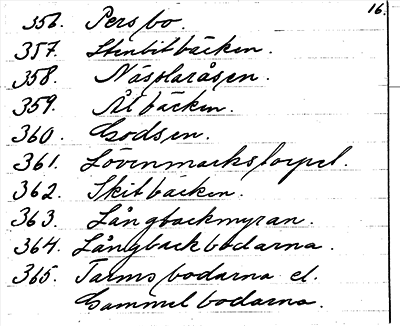 16.
356. Persbo.
357. Stenbitbäcken.
358. Näsolaråsen.
359. Ålbäcken.
360. Godsen.
361. Lövenmarkstorpet.
362. Skitbäcken.
363. Långbackmyran.
364. Långbackbodarna.
365. Tarmsbodarna el.
Gammelbodarna.